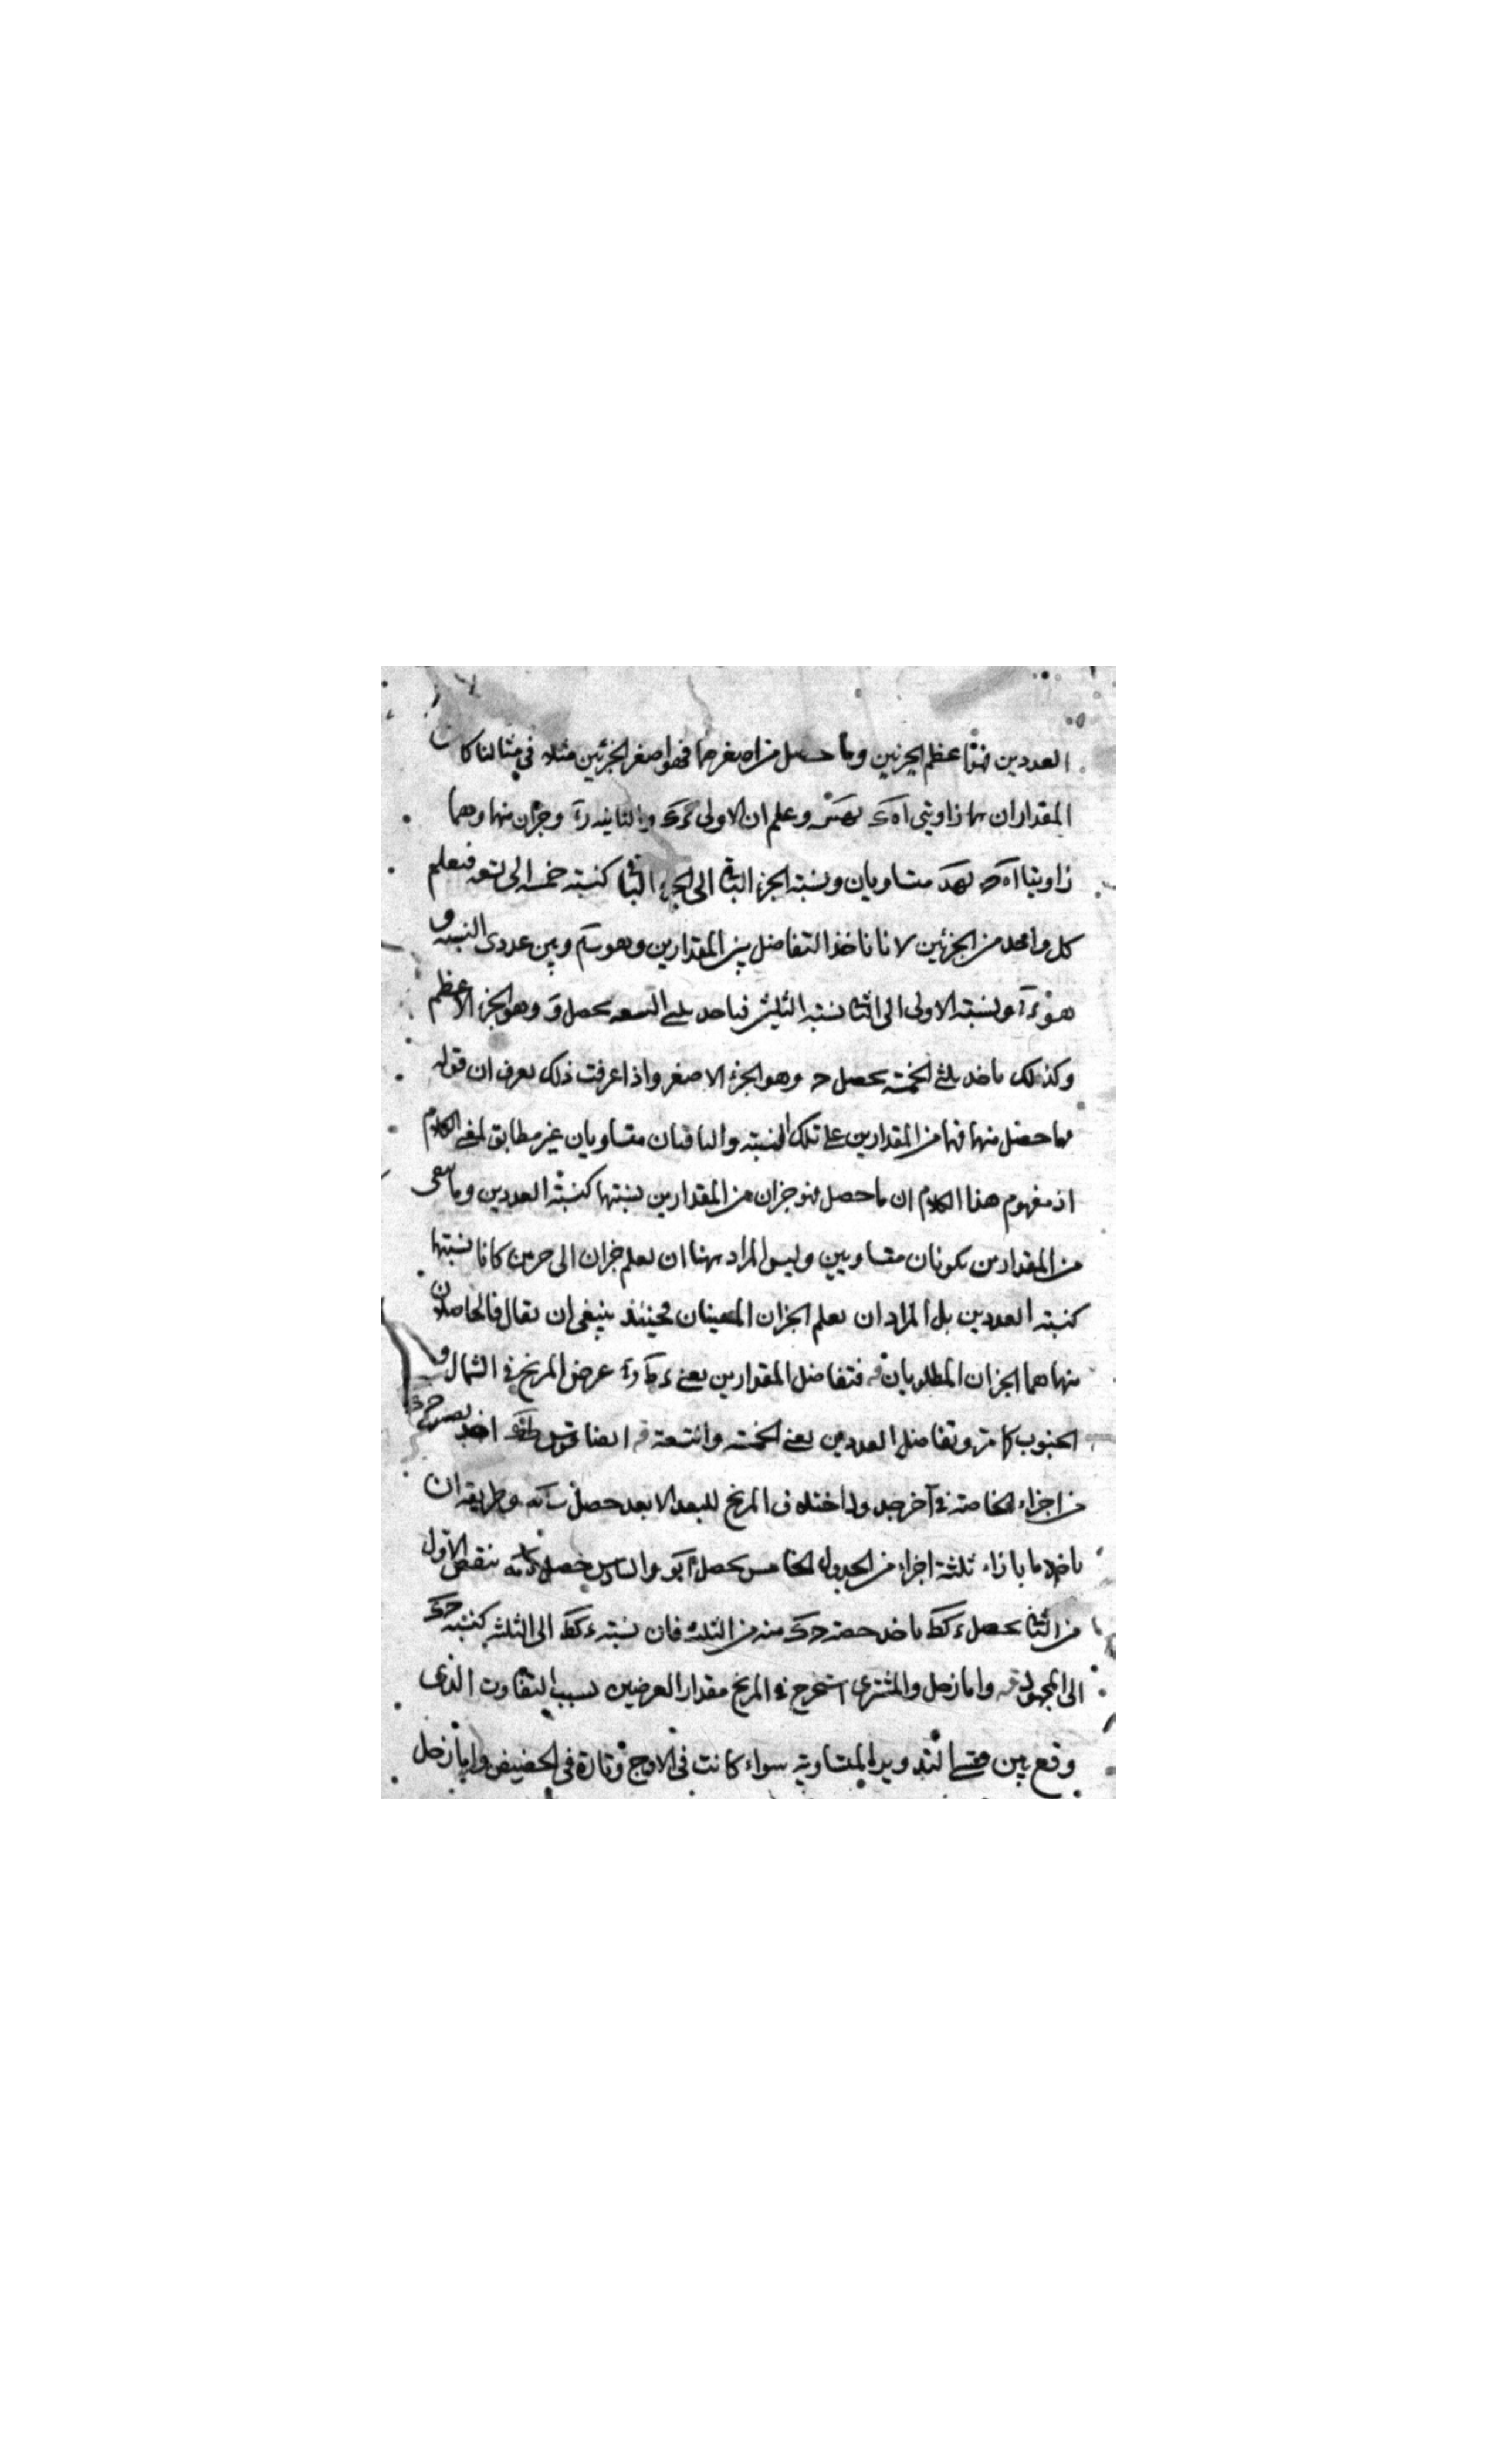 العددين فهو اعظم الجزئين وما حصل من اصغرهما فهو اصغر الجزئين مثلا في مثالنا كان
المقداران هما زاويتي وعلم ان الاولى والثانية وجزآن منها وهما
زاويتا متساويان ونسبة الجزء الباقي الى الجزء الباقي كنسبة خمسة الى تسعة فنعلم
كل واحد من الجزئين لانا ناخذ التفاضل بين المقدارين وهو وبين عددى النسبة و
هو ونسبة الاولى الى الثانى نسبة الثلث فناخذ ثلثى التسعة يحصل و وهو الجزء الاعظم
وكذلك ناخذ ثلثى الخمسة يحصل وهو الجزء الاصغر واذا عرفت ذلك تعرف ان قوله
فما حصل منهما فهما من المقدارين على تلك النسبة والباقيان متساويان غير مطابق الكلام
اذ مفهوم هذا الكلام ان ما حصل فهو جزآن من المقدارين نسبتها كنسبة العددين وما بقى
من المقدارين يكونان متساويين وليس المراد ههنا ان يعلم جزآن الى جزئين كانا نسبتها
كنسبة العددين بل المراد ان يعلم الجزآن المعينان فحينئذ ينبغى ان يقال فالحاصلان
منهما هما الجزآن المطلوبان فتفاضل المقدارين يعنى عرض المريخ فى الشمال و
الجنوب كما مر وتفاضل العددين يعنى الخمسة والتسعة ايضا قوس
من اجزاء الخاصة فى آخر جدوله اخذناه فى المريخ للبعد الابعد حصل وطريقه ان
ناخذ ما بازاء ثلثة اجزاء من الجدول الخامس يحصل والسادس حصل ننقص الاول
من الثانى يحصل ناخذ حصة منه من الثلثة فان نسبة الى الثلثة كنسبة
الى المجهول واما زحل والمشترى استخرج فى المريخ مقدار العرضين بسبب التفاوت الذى
وقع بين قسى التدوير المتساوية سواء كانت فى الاوج وتارة فى الحضيض واما زحل